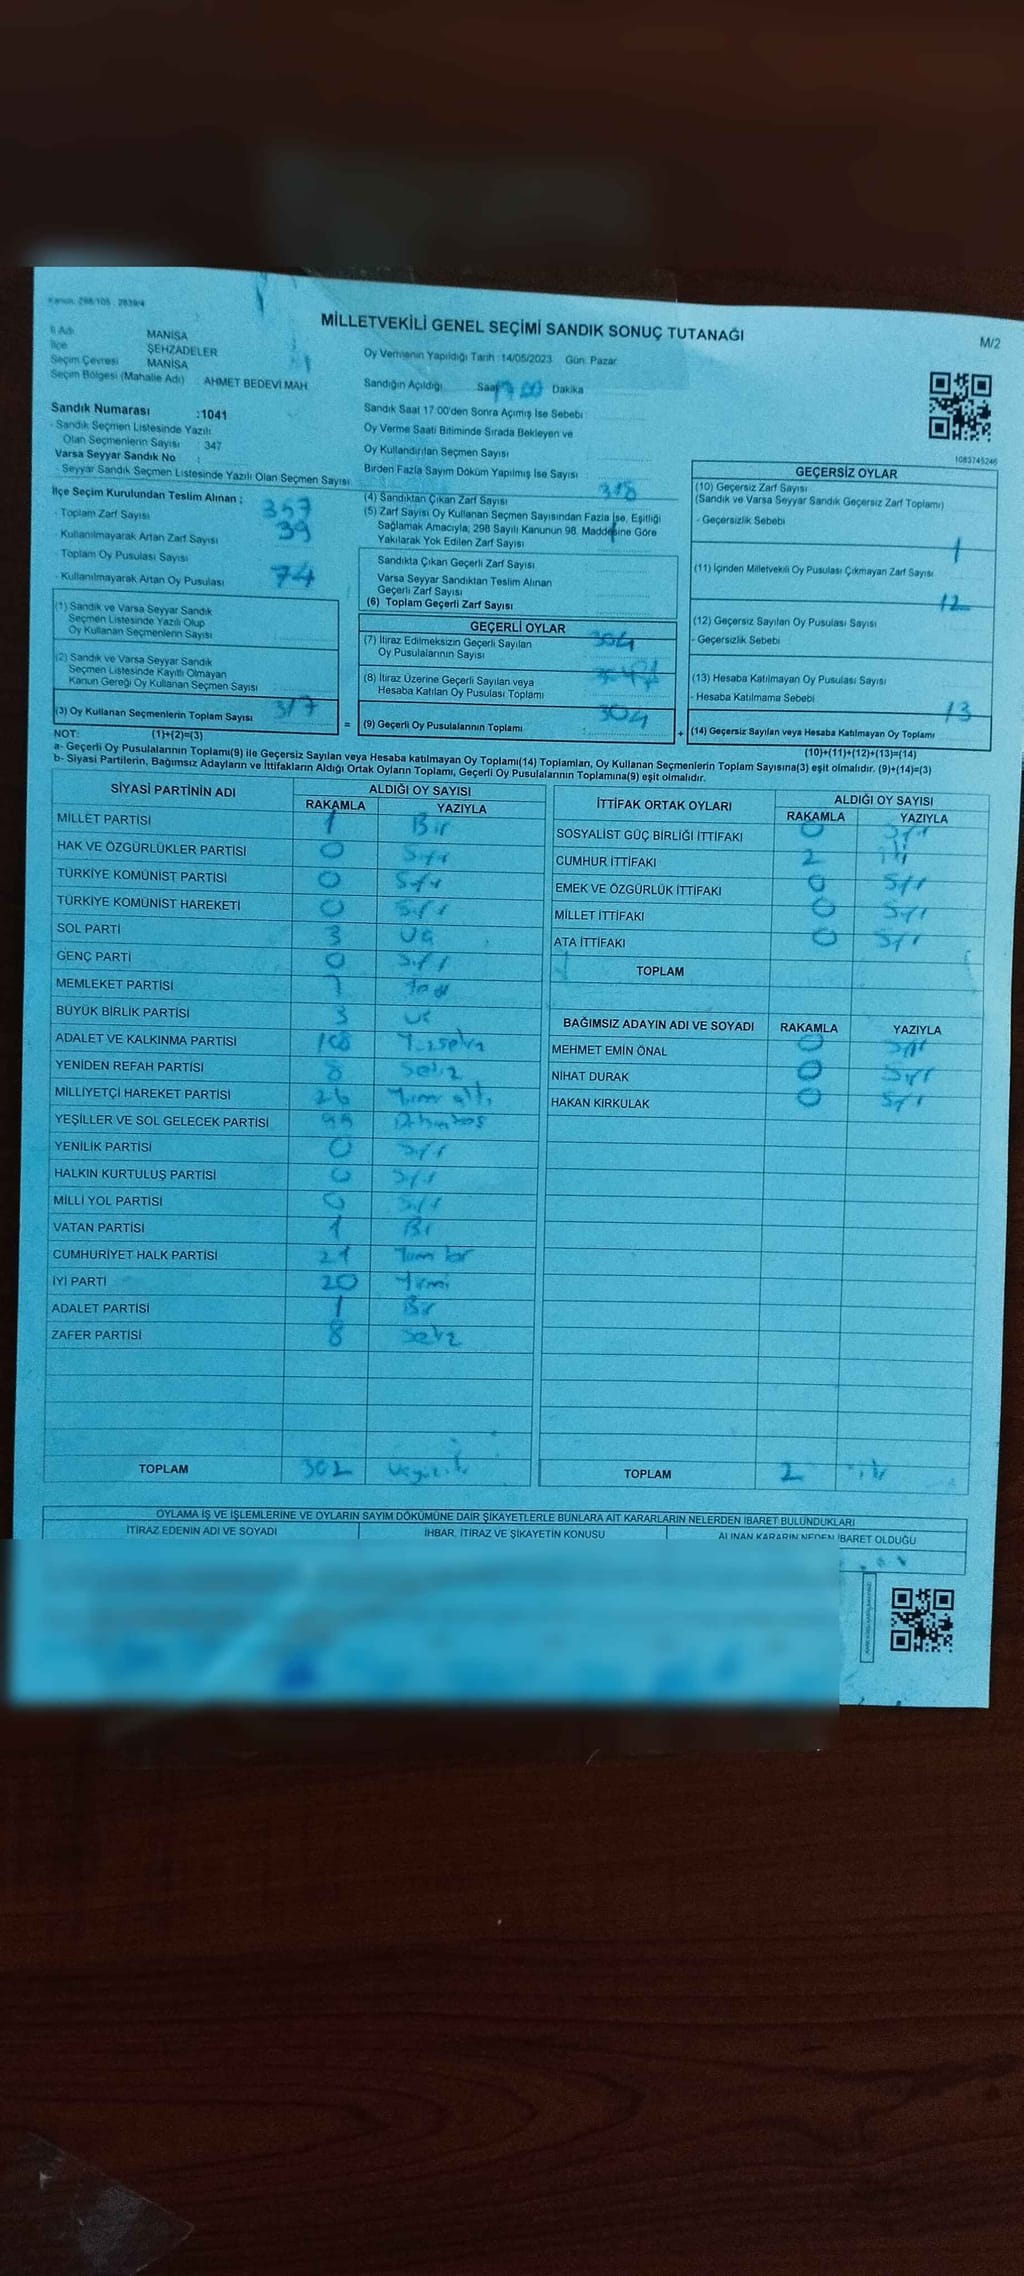 Kanun: 298/105 - 2839/4
MİLLETVEKİLİ GENEL SEÇİMİ SANDIK SONUÇ TUTANAĞI
M/2
İl Adı MANİSA
İlçe ŞEHZADELER
Seçim Çevresi MANİSA
Seçim Bölgesi (Mahalle Adı) : AHMET BEDEVİ MAH
Sandık Numarası :1041
- Sandık Seçmen Listesinde Yazılı
Olan Seçmenlerin Sayısı : 347
Varsa Seyyar Sandık No :
- Seyyar Sandık Seçmen Listesinde Yazılı Olan Seçmen Sayısı
İlçe Seçim Kurulundan Teslim Alınan :
- Toplam Zarf Sayısı 357
- Kullanılmayarak Artan Zarf Sayısı 39
- Toplam Oy Pusulası Sayısı
- Kullanılmayarak Artan Oy Pusulası 74
(1) Sandık ve Varsa Seyyar Sandık
Seçmen Listesinde Yazılı Olup
Oy Kullanan Seçmenlerin Sayısı
(2) Sandık ve Varsa Seyyar Sandık
Seçmen Listesinde Kayıtlı Olmayan
Kanun Gereği Oy Kullanan Seçmen Sayısı
(3) Oy Kullanan Seçmenlerin Toplam Sayısı 317
Oy Vermenin Yapıldığı Tarih : 14/05/2023 Gün: Pazar
Sandığın Açıldığı Saat 17 00 Dakika
Sandık Saat 17:00'den Sonra Açımış İse Sebebi :
Oy Verme Saati Bitiminde Sırada Bekleyen ve
Oy Kullandırılan Seçmen Sayısı
Birden Fazla Sayım Döküm Yapılmış İse Sayısı
(4) Sandıktan Çıkan Zarf Sayısı 318
(5) Zarf Sayısı Oy Kullanan Seçmen Sayısından Fazla İse, Eşitliği
Sağlamak Amacıyla, 298 Sayılı Kanunun 98. Maddesine Göre
Yakılarak Yok Edilen Zarf Sayısı 1
Sandıkta Çıkan Geçerli Zarf Sayısı
Varsa Seyyar Sandıktan Teslim Alınan
Geçerli Zarf Sayısı
(6) Toplam Geçerli Zarf Sayısı
GEÇERLİ OYLAR
(7) İtiraz Edilmeksizin Geçerli Sayılan
Oy Pusulalarının Sayısı 304
(8) İtiraz Üzerine Geçerli Sayılan veya
Hesaba Katılan Oy Pusulası Toplamı
= (9) Geçerli Oy Pusulalarının Toplamı 304
1083745246
GEÇERSİZ OYLAR
(10) Geçersiz Zarf Sayısı
(Sandık ve Varsa Seyyar Sandık Geçersiz Zarf Toplamı)
- Geçersizlik Sebebi
1
(11) İçinden Milletvekili Oy Pusulası Çıkmayan Zarf Sayısı
12
(12) Geçersiz Sayılan Oy Pusulası Sayısı
- Geçersizlik Sebebi
(13) Hesaba Katılmayan Oy Pusulası Sayısı
- Hesaba Katılmama Sebebi
13
+ (14) Geçersiz Sayılan veya Hesaba Katılmayan Oy Toplamı
NOT: (1)+(2)=(3) (10)+(11)+(12)+(13)=(14)
a- Geçerli Oy Pusulalarının Toplamı(9) ile Geçersiz Sayılan veya Hesaba katılmayan Oy Toplamı(14) Toplamları, Oy Kullanan Seçmenlerin Toplam Sayısına(3) eşit olmalıdır. (9)+(14)=(3)
b- Siyasi Partilerin, Bağımsız Adayların ve İttifakların Aldığı Ortak Oyların Toplamı, Geçerli Oy Pusulalarının Toplamına(9) eşit olmalıdır.
SİYASİ PARTİNİN ADI ALDIĞI OY SAYISI
RAKAMLA YAZIYLA
MİLLET PARTİSİ 1 Bir
HAK VE ÖZGÜRLÜKLER PARTİSİ 0 Sıfır
TÜRKİYE KOMÜNİST PARTİSİ 0 Sıfır
TÜRKİYE KOMÜNİST HAREKETİ 0 Sıfır
SOL PARTİ 3 Üç
GENÇ PARTİ 0 Sıfır
MEMLEKET PARTİSİ
BÜYÜK BİRLİK PARTİSİ 3 Üç
ADALET VE KALKINMA PARTİSİ 108 Yüzsekiz
YENİDEN REFAH PARTİSİ 8 Sekiz
MİLLİYETÇİ HAREKET PARTİSİ 26 Yirmi altı
YEŞİLLER VE SOL GELECEK PARTİSİ
YENİLİK PARTİSİ 0 Sıfır
HALKIN KURTULUŞ PARTİSİ 0 Sıfır
MİLLİ YOL PARTİSİ 0 Sıfır
VATAN PARTİSİ 1 Bir
CUMHURİYET HALK PARTİSİ 21 Yirmi bir
İYİ PARTİ 20 Yirmi
ADALET PARTİSİ 1 Bir
ZAFER PARTİSİ 8 Sekiz
TOPLAM 302 Üçyüziki
İTTİFAK ORTAK OYLARI ALDIĞI OY SAYISI
RAKAMLA YAZIYLA
SOSYALİST GÜÇ BİRLİĞİ İTTİFAKI 0 Sıfır
CUMHUR İTTİFAKI 2 iki
EMEK VE ÖZGÜRLÜK İTTİFAKI 0 Sıfır
MİLLET İTTİFAKI 0 Sıfır
ATA İTTİFAKI 0 Sıfır
TOPLAM
BAĞIMSIZ ADAYIN ADI VE SOYADI RAKAMLA YAZIYLA
MEHMET EMİN ÖNAL 0 Sıfır
NİHAT DURAK 0 Sıfır
HAKAN KIRKULAK 0 Sıfır
TOPLAM 2 iki
OYLAMA İŞ VE İŞLEMLERİNE VE OYLARIN SAYIM DÖKÜMÜNE DAİR ŞİKAYETLERLE BUNLARA AİT KARARLARIN NELERDEN İBARET BULUNDUKLARI
İTİRAZ EDENİN ADI VE SOYADI İHBAR, İTİRAZ VE ŞİKAYETİN KONUSU ALINAN KARARIN NEDEN İBARET OLDUĞU